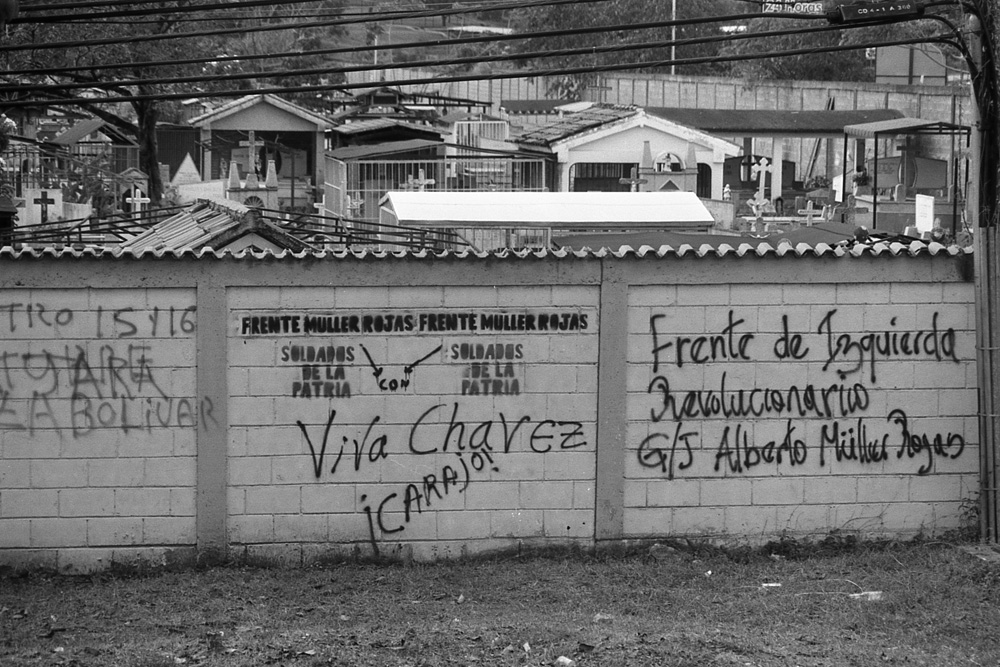 24 horas
TRO 15 Y 16
BOLIVAR
FRENTE MULLER ROJAS FRENTE MULLER ROJAS
SOLDADOS
DE LA
PATRIA
CON
SOLDADOS
DE LA
PATRIA
Viva Chavez
¡CARAJO!
Frente de Izquierda
Revolucionario
G/J Alberto Müller Rojas